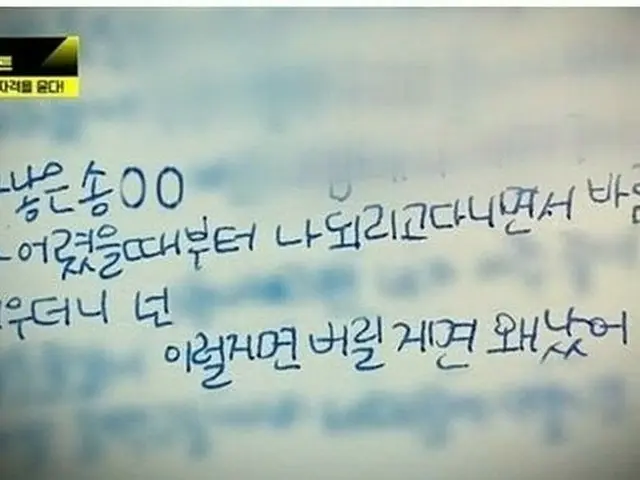 트
자격을 묻다!
낳은 송OO
어렸을때부터 나 되리고다니면서 바람
우더니 넌
이럴거면 버릴 게면 왜 났어